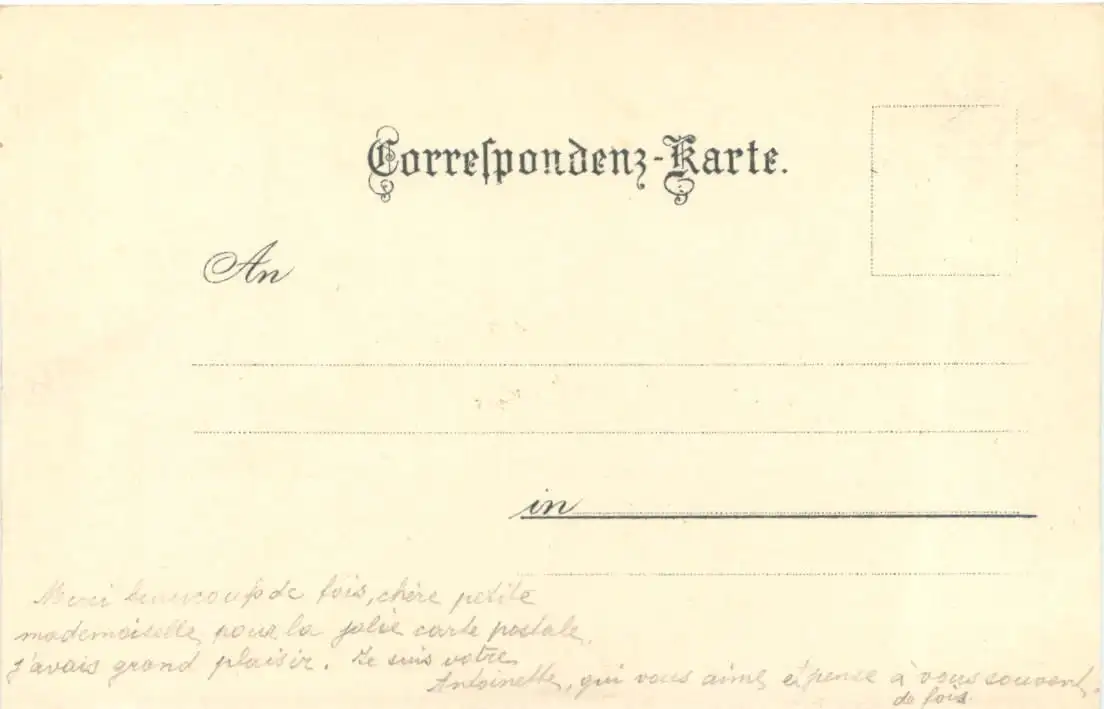 Correſpondenz-Karte.
An
in
Merci beaucoup de fois, chère petite
mademoiselle, pour la jolie carte postale,
j'avais grand plaisir. Je suis votre
Antoinette, qui vous aime et pense à vous souvent
de fois.